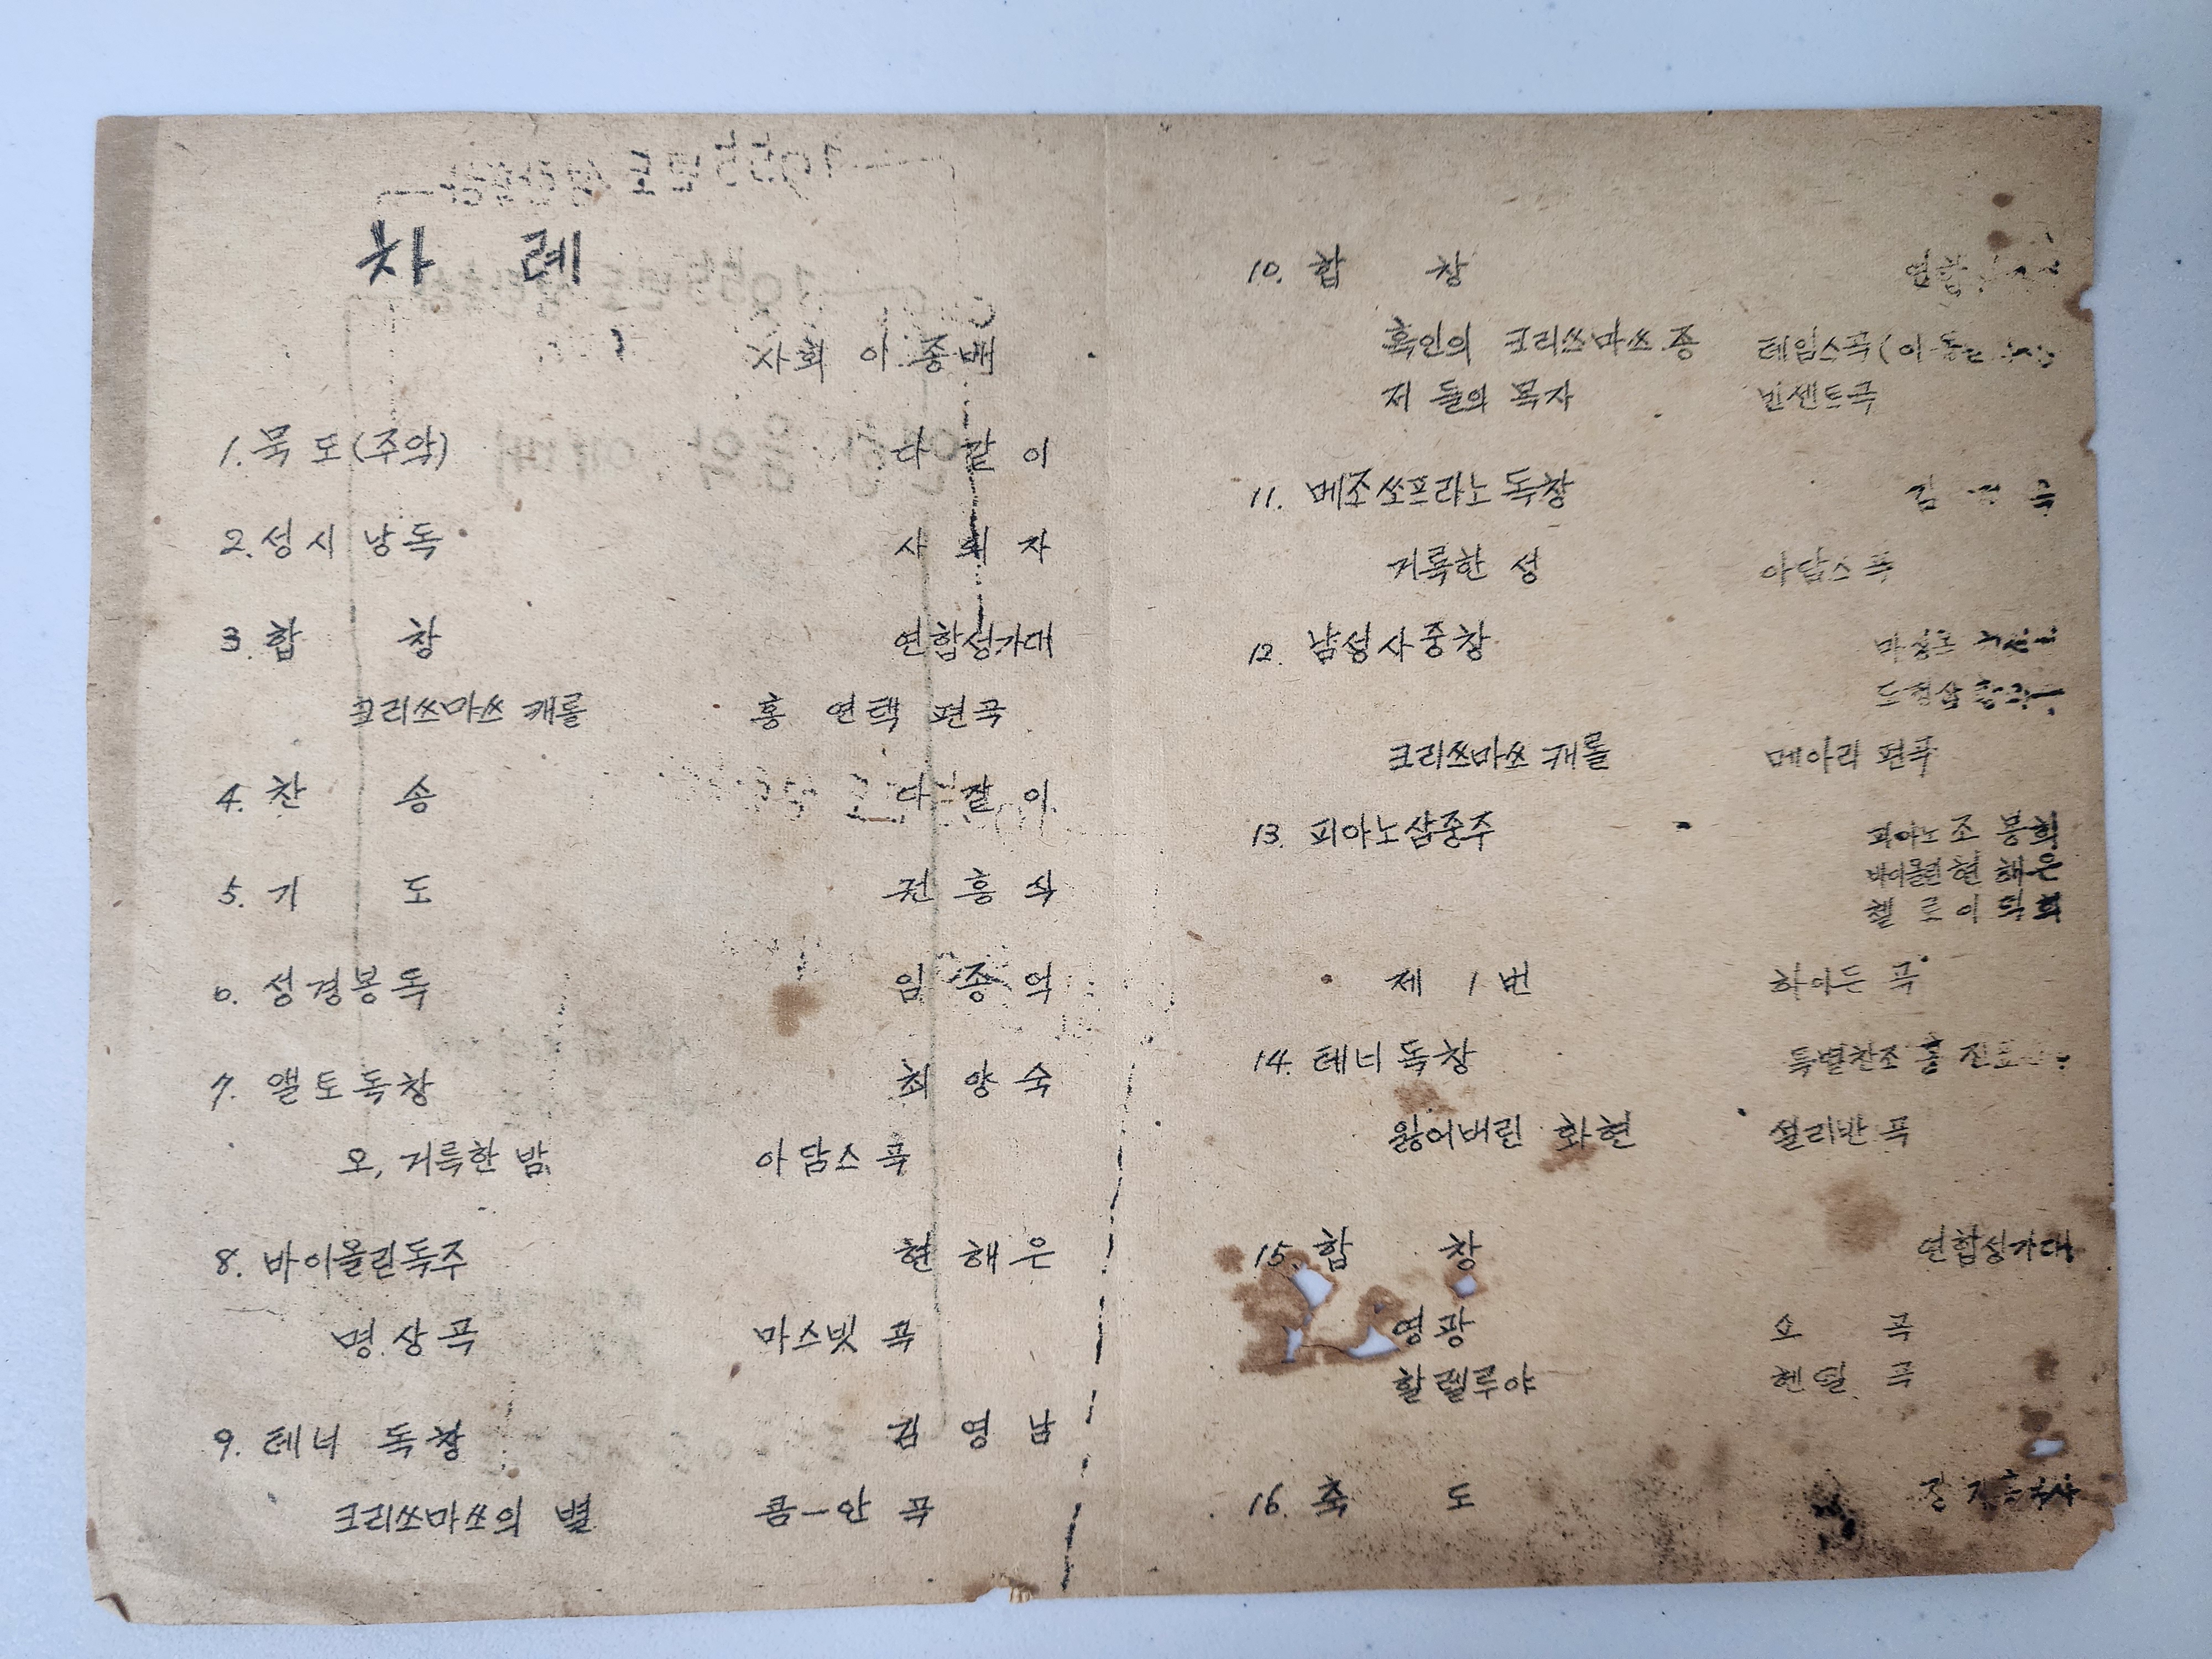 차 례
사회 이 종 배
1. 묵 도 (주악) 다 같 이
2. 성 시 낭 독 사 회 자
3. 합 창 연합성가대
크리쓰마쓰 캐롤 홍 연택 편곡
4. 찬 송 다 같 이
5. 기 도 전 흥 식
6. 성 경 봉 독 임 종 억
7. 앨 토 독 창 최 양 숙
오, 거룩한 밤 아담스 곡
8. 바이올린독주 현 해 은
명 상 곡 마스넷 곡
9. 테너 독 창 김 영 남
크리쓰마쓰의 별 콤ー안 곡
10. 합 창 연합
흑인의 크리쓰마쓰 종 테임스곡 (이 동
저 들의 목자 빈센트곡
11. 메조쏘프라노 독창 김
거룩한 성 아담스 곡
12. 남성사중창
크리쓰마쓰 캐롤 메아리 편곡
13. 피아노삼중주 피아노 조 봉 희
바이올린 현 해 은
첼 로 이 덕 희
제 1 번 하이든 곡
14. 테너 독창 특별찬조 홍 진표
잃어버린 화현 설리반 곡
15. 합 창 연합성가대
영광 곡
할렐루야 헨델 곡
16. 축 도